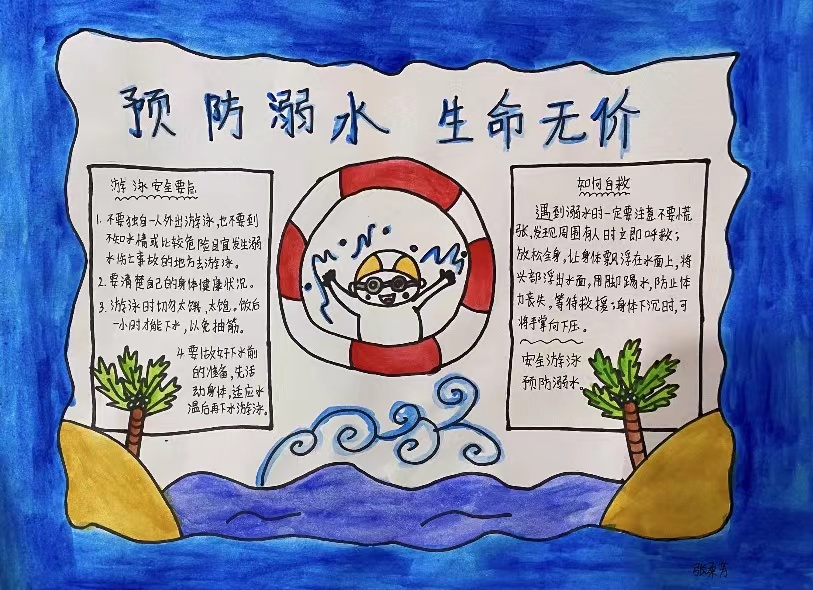 预防溺水 生命无价
游泳安全要点
1. 不要独自一人外出游泳,也不要到
不知水情或比较危险且宜发生溺
水伤亡事故的地方去游泳。
2. 要清楚自己的身体健康状况。
3. 游泳时切勿太饿、太饱。饭后
一小时才能下水,以免抽筋。
4. 要做好下水前
的准备,先活
动身体,适应水
温后再下水游泳。
如何自救
遇到溺水时一定要注意不要慌
张,发现周围有人时立即呼救;
放松全身,让身体飘浮在水面上,将
头部浮出水面,用脚踢水,防止体
力丧失,等待救援;身体下沉时,可
将手掌向下压。
安全游泳
预防溺水。